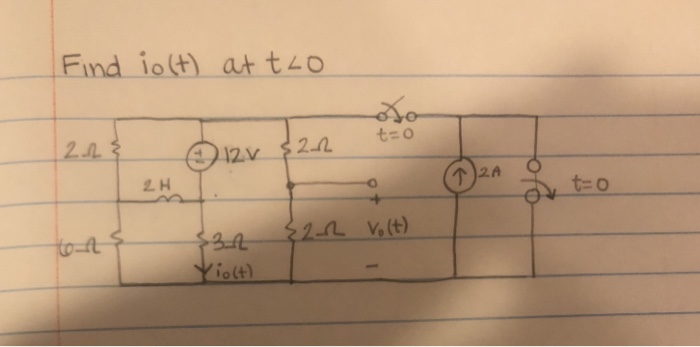 Find io(t) at t<0
t=0
2Ω
+-
12V
2Ω
2A
t=0
2H
+
6Ω
3Ω
2Ω
Vo(t)
io(t)
-